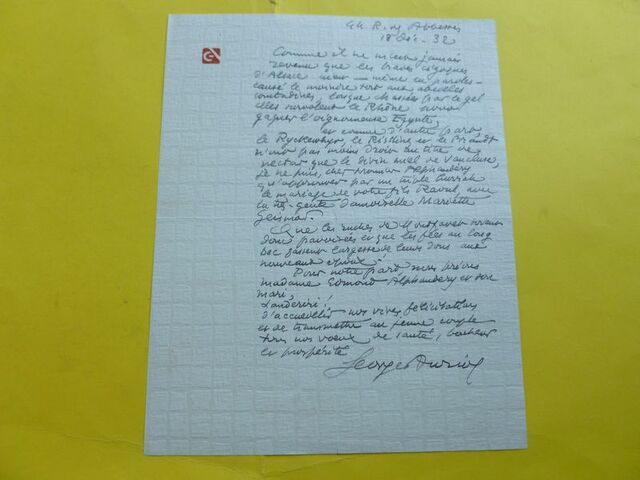 44 R. des Abbesses
18 Déc - 32
Comme il ne m'est jamais
revenu que les braves cigognes
d'Alsace aient - même en paroles -
causé le moindre tort aux abeilles
comtadines, lorsque chassées par le gel
elles survolent le Rhône pour
gagner l'oignonneuse Égypte,
et comme d'autre part,
le Ryckewihr, le Riesling et le Brandt
n'ont pas moins droit au titre de
nectar que le divin miel de Vaucluse,
je ne puis, cher Monsieur Alphandéry
qu'approuver par un triple hurrah
le mariage de votre fils Raoul, avec
la très gente Damoiselle Marcelle
Geismar.
Que les ruches de Montfavet soient
donc pavoisées et que les fées au long
bec fassent largesse de leurs dons aux
nouveaux époux !
Pour notre part nous prions
madame Edmond Alphandéry et son
mari,
Landeriri !
d'accueillir nos vives félicitations
et de transmettre au jeune couple
tous nos voeux de santé, bonheur
et prospérité
Georges Auriol